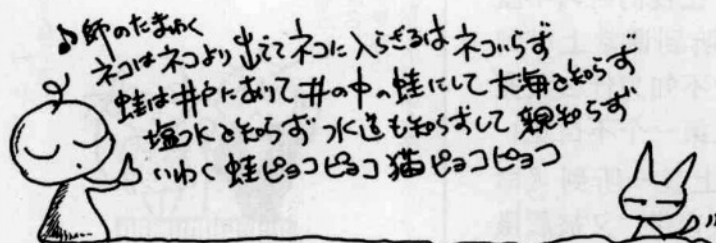 ♪師のたまわく
ネコはネコより出でてネコに入らざるはネコいらず
蛙は井戸にありて井の中の蛙にして大海を知らず
塩水を知らず水道も知らずして親知らず
いわく蛙ピョコピョコ猫ピョコピョコ